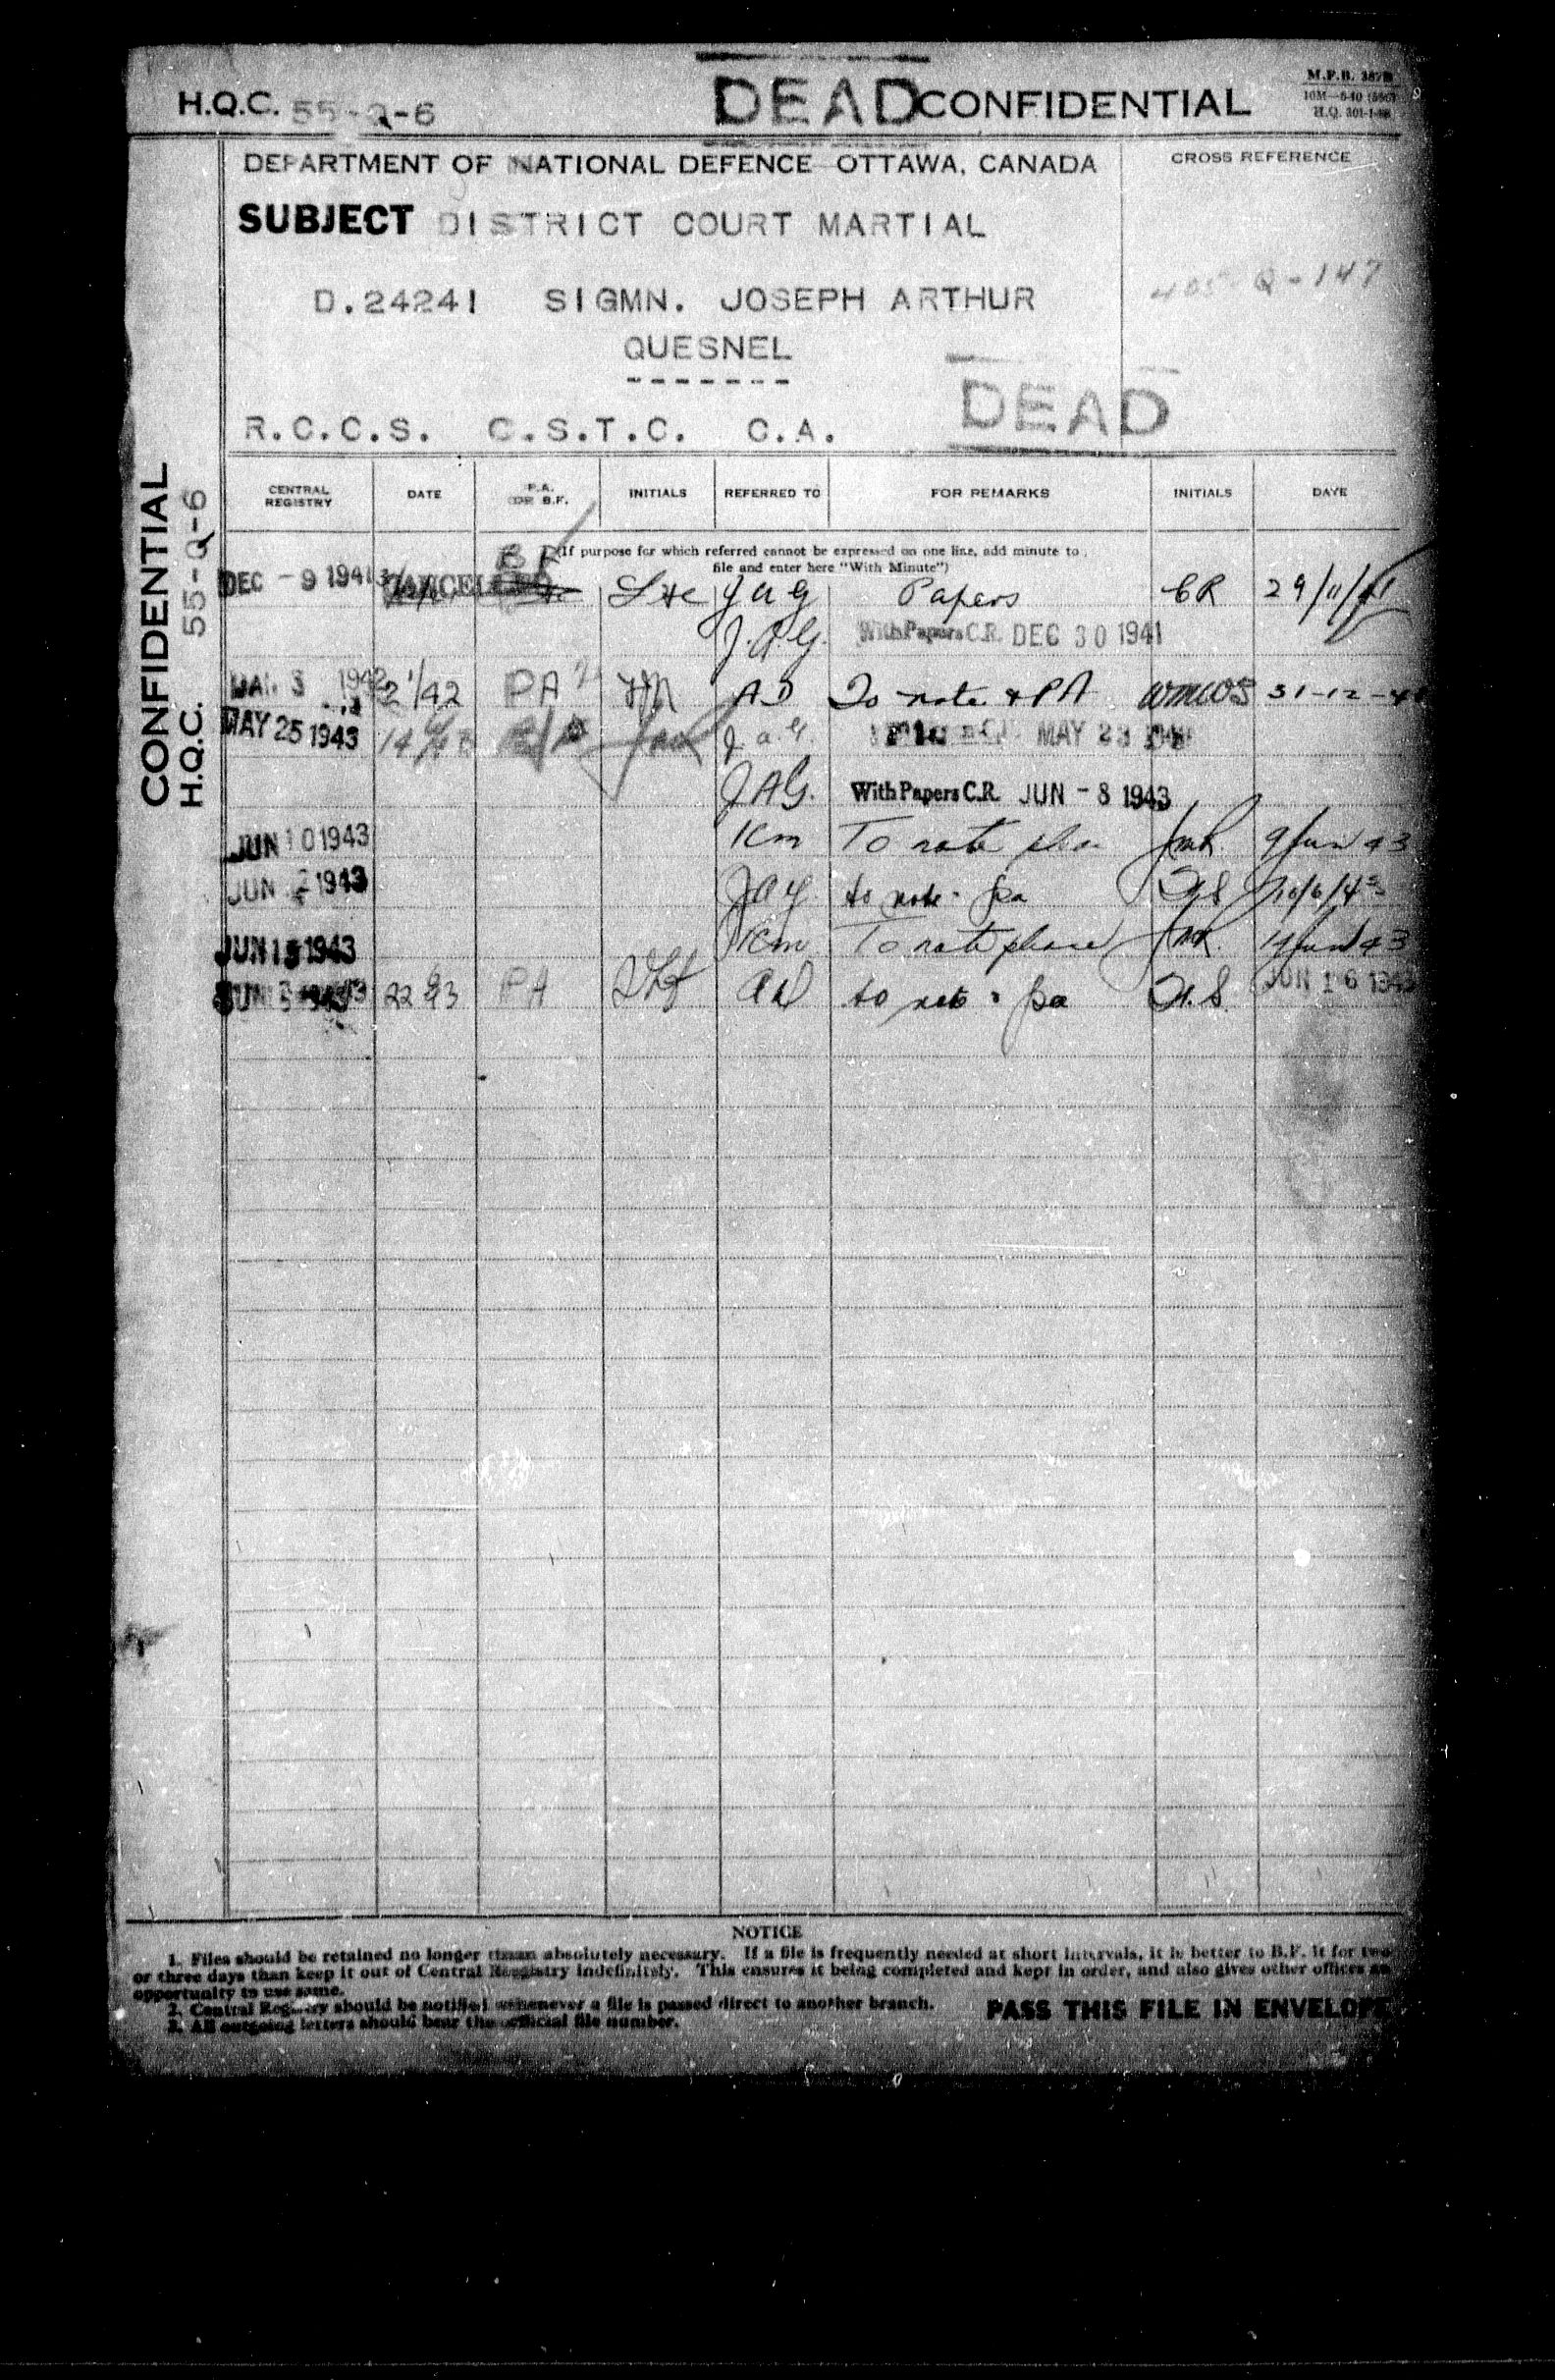 H.Q.C. 55-Q-6 DEAD CONFIDENTIAL
M.F.B.
H.Q.
DEPARTMENT OF NATIONAL DEFENCE OTTAWA, CANADA
CROSS REFERENCE
SUBJECT DISTRICT COURT MARTIAL
D.24241 SIGMN. JOSEPH ARTHUR
405-Q-147
QUESNEL
-------
DEAD
R.C.C.S. C.S.T.C. C.A.
CONFIDENTIAL
H.Q.C. 55-Q-6
CENTRAL REGISTRY DATE P.A. OR B.F. INITIALS REFERRED TO FOR REMARKS INITIALS DATE
(If purpose for which referred cannot be expressed on one line, add minute to
file and enter here "With Minute")
BF
DEC -9 1941 CANCELLED JAG Papers CR 29/11/41
J.A.G. With Papers C.R. DEC 30 1941
JAN 3 1942 2/1/42 PA AD To note & PA 31-12-41
MAY 25 1943 J.a.G. MAY 23
JAG. With Papers C.R. JUN -8 1943
JUN 10 1943 To note please 9 Jun 43
JUN 1943 JAG. to note. pa 10/6/43
JUN 15 1943 To note please 14 Jun 43
JUN 1943 22 6/43 PA AD to note & pa JUN 16 1943
NOTICE
1. Files should be retained no longer than absolutely necessary. If a file is frequently needed at short intervals, it is better to B.F. it for two
or three days than keep it out of Central Registry indefinitely. This ensures it being completed and kept in order, and also gives other offices an
opportunity to use same.
2. Central Registry should be notified whenever a file is passed direct to another branch.
3. All outgoing letters should bear the official file number.
PASS THIS FILE IN ENVELOPE